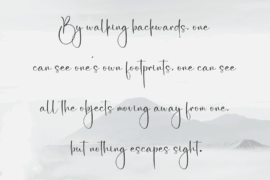 By walking backwards, one
can see one's own footprints, one can see
all the objects moving away from one,
but nothing escapes sight.